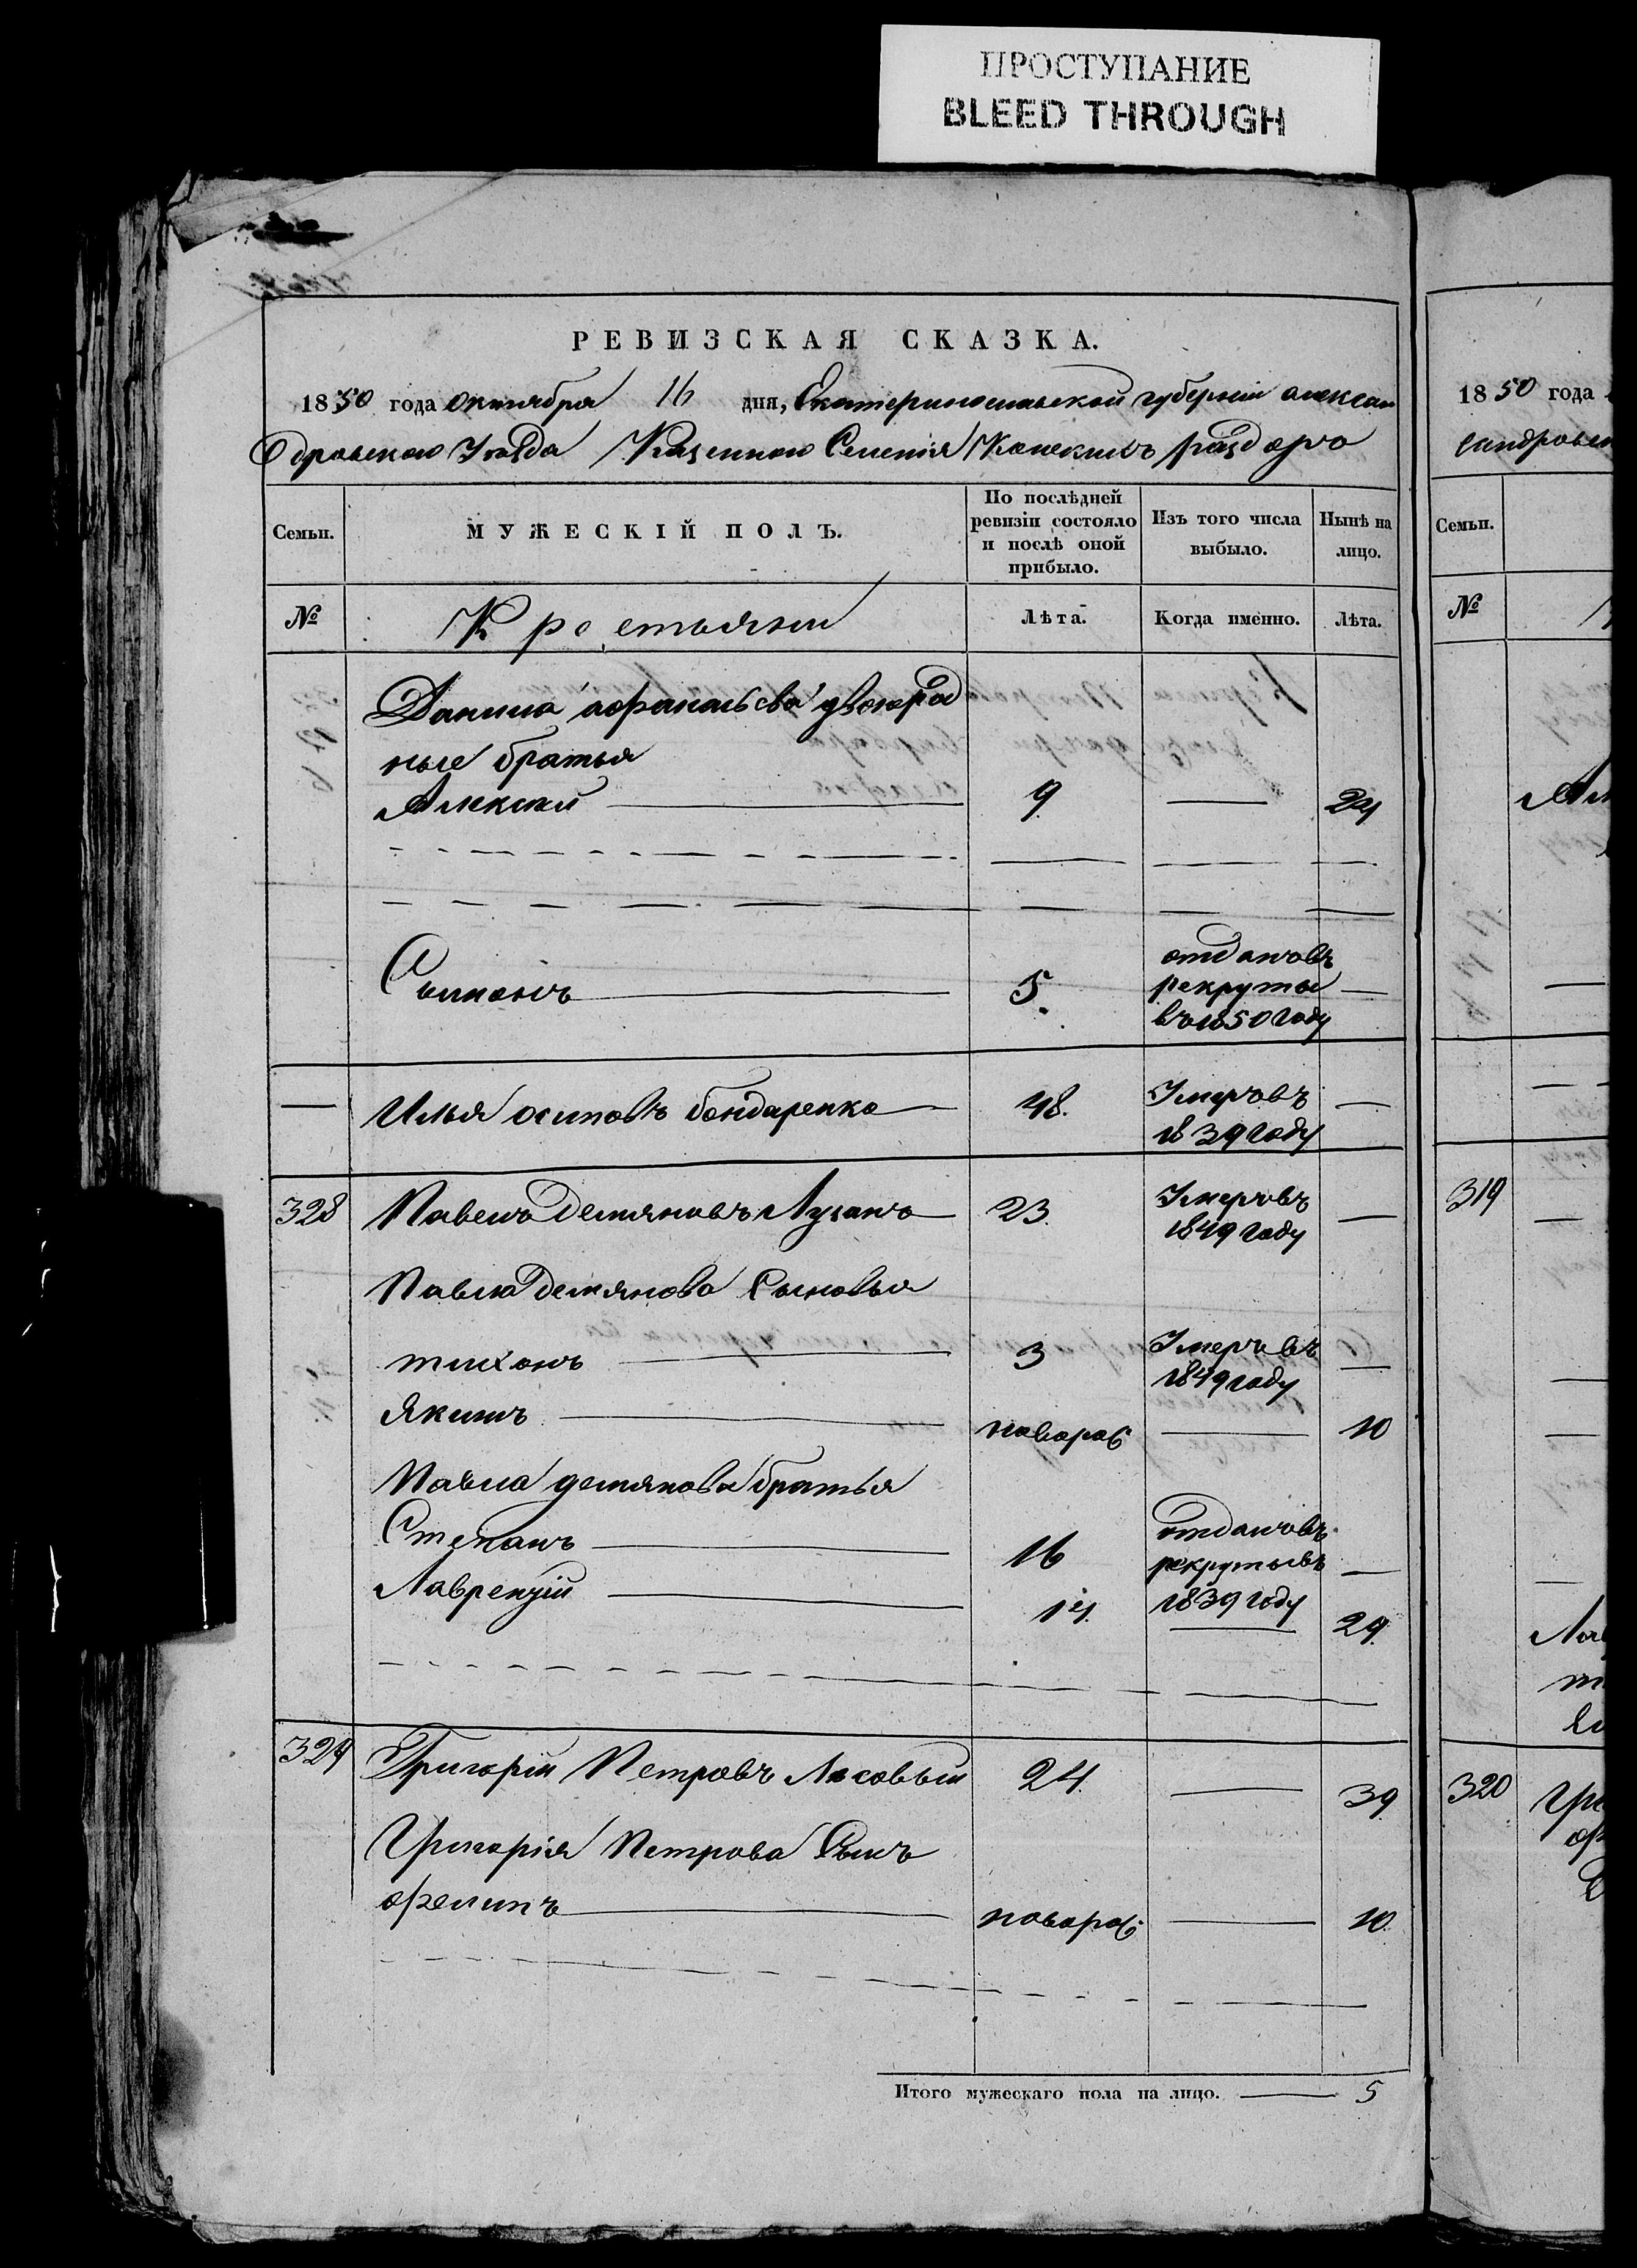 ПРОСТУПАНИЕ
BLEED THROUGH
РЕВИЗСКАЯ СКАЗКА.
1850 года октября 16 дня, Екатеринославской губернии алексан
дровского Уезда Казенного Селения Конскихъ раздоръ
Семьи.
МУЖЕСКІЙ ПОЛЪ.
По послѣдней ревизіи состояло и послѣ оной прибыло.
Изъ того числа выбыло.
Нынѣ на лицо.
№ Крестьяни Лѣта. Когда именно. Лѣта.
Данила афанасьева двоюрод
ные братья
Алексей 9 24
Симонъ 5. отданъ въ
рекруты
въ 1850 году
Илья осиповъ бондаренко 48. Умеръ въ
1839 году
328 Павелъ Демяновъ Лузанъ 23. Умеръ въ
1849 году
Павла Демянова Сыновья
тихонъ 3 Умеръ въ
1849 году
Якимъ новорож 10
Павла демянова братья
Степанъ 16 отданъ въ
рекруты въ
1839 году
Лаврентій 14. 29.
329 Григорій Петровъ Лясовый 24. 39
Григорія Петрова Сынъ
филипъ новорож 10.
Итого мужескаго пола на лицо. 5
1850 года
сандровск
Семьи.
№
319
320